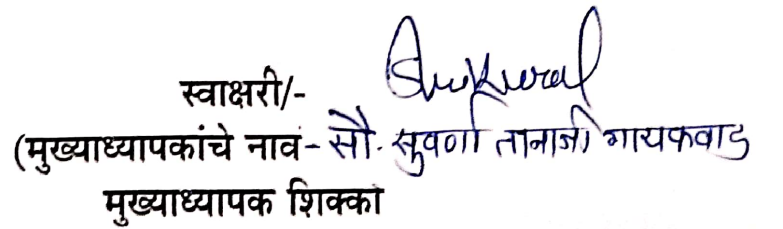 स्वाक्षरी/-
(मुख्याध्यापकांचे नाव- सौ. सुवर्णा तानाजी गायकवाड
मुख्याध्यापक शिक्का